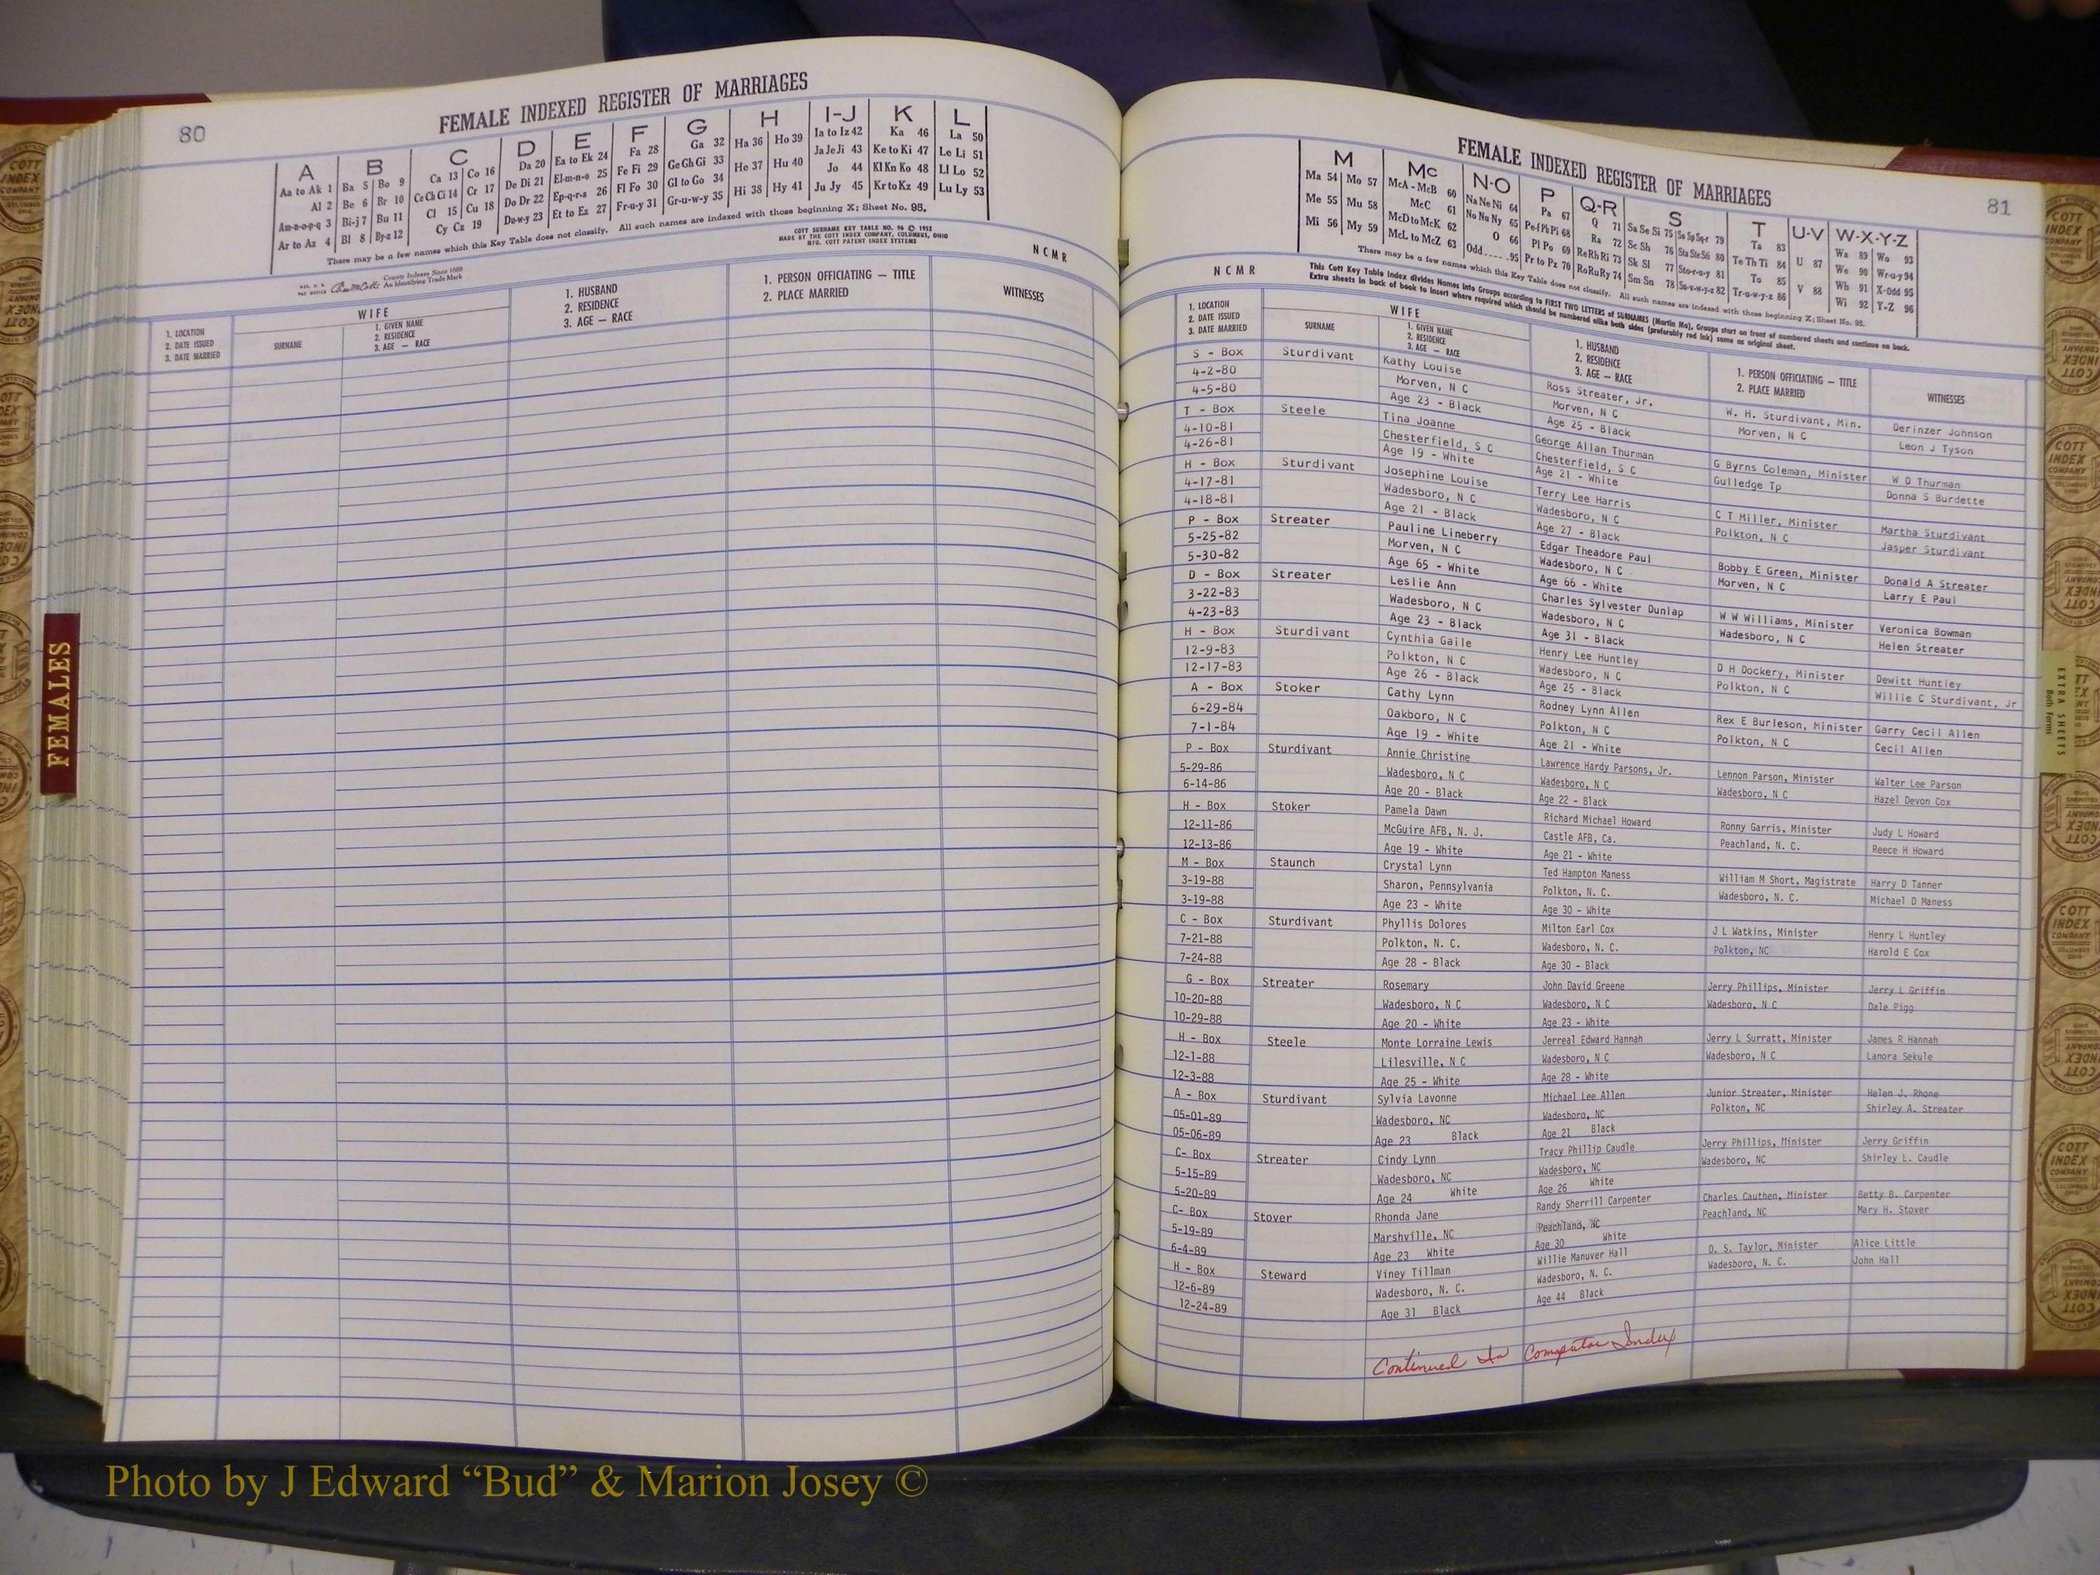 80
FEMALE INDEXED REGISTER OF MARRIAGES
A B C D E F G H I-J K L
Aa to Ak 1 Ba 5 Bo 9 Ca 13 Co 16 Da 20 Ea to Ek 24 Fa 28 Ga 32 Ha 36 Ho 39 Ia to Iz 42 Ka 46 La 50
Al 2 Be 6 Br 10 Ce Ch Ci 14 Cr 17 De Di 21 El-m-n-o 25 Fe Fi 29 Ge Gh Gi 33 He 37 Hu 40 Ja Je Ji 43 Ke to Ki 47 Le Li 51
Am-n-o-p-q 3 Bi-j 7 Bu 11 Cl 15 Cu 18 Do Dr 22 Ep-q-r-s 26 Fl Fo 30 Gl to Go 34 Hi 38 Hy 41 Jo 44 Kl Kn Ko 48 Ll Lo 52
Ar to Az 4 Bl 8 By-z 12 Cy Cz 19 Du-w-y 23 Et to Ez 27 Fr-u-y 31 Gr-u-w-y 35 Ju Jy 45 Kr to Kz 49 Lu Ly 53
There may be a few names which this Key Table does not classify. All such names are indexed with those beginning X; Sheet No. 95.
COTT SURNAME KEY TABLE NO. 96 © 1952
MADE BY THE COTT INDEX COMPANY, COLUMBUS, OHIO
MFG. COTT PATENT INDEX SYSTEMS
County Indexes Since 1888
An Identifying Trade Mark
NCMR
1. LOCATION
2. DATE ISSUED
3. DATE MARRIED
WIFE
SURNAME
1. GIVEN NAME
2. RESIDENCE
3. AGE — RACE
1. HUSBAND
2. RESIDENCE
3. AGE — RACE
1. PERSON OFFICIATING — TITLE
2. PLACE MARRIED
WITNESSES
FEMALES
FEMALE INDEXED REGISTER OF MARRIAGES
81
M Mc N-O P Q-R S T U-V W-X-Y-Z
Ma 54 Mo 57 McA - McB 60 Na Ne Ni 64 Pa 67 Q 71 Sa Se Si 75 So Sp Sq-r 79 Ta 83 U 87 Wa 89 Wo 93
Me 55 Mu 58 McC 61 No Nu Ny 65 Pe-f Ph Pi 68 Ra 72 Sc Sh 76 Sta Ste Sti 80 Te Th Ti 84 V 88 We 90 Wr-u-y 94
Mi 56 My 59 McD to McK 62 O 66 Pl Po 69 Re Rh Ri 73 Sk Sl 77 Sto-r-u-y 81 To 85 Wh 91 X-Odd 95
McL to McZ 63 Odd 95 Pr to Pz 70 Ro Ru Ry 74 Sm Sn 78 Su-v-w-y-z 82 Tr-u-w-y-z 86 Wi 92 Y-Z 96
There may be a few names which this Key Table does not classify. All such names are indexed with those beginning X; Sheet No. 95.
NCMR
This Cott Key Table Index divides Names into Groups according to FIRST TWO LETTERS of SURNAMES (Martin Ma), Groups start on front of numbered sheets and continue on back.
Extra sheets in back of book to insert where required which should be numbered alike both sides (preferably red ink) same as original sheet.
1. LOCATION
2. DATE ISSUED
3. DATE MARRIED
WIFE
SURNAME
1. GIVEN NAME
2. RESIDENCE
3. AGE — RACE
1. HUSBAND
2. RESIDENCE
3. AGE — RACE
1. PERSON OFFICIATING — TITLE
2. PLACE MARRIED
WITNESSES
S - Box Sturdivant Kathy Louise Ross Streater, Jr. W. H. Sturdivant, Min. Derinzer Johnson
4-2-80 Morven, N C Morven, N C Morven, N C Leon J Tyson
4-5-80 Age 23 - Black Age 25 - Black
T - Box Steele Tina Joanne George Allan Thurman G Byrns Coleman, Minister W D Thurman
4-10-81 Chesterfield, S C Chesterfield, S C Gulledge Tp Donna S Burdette
4-26-81 Age 19 - White Age 21 - White
H - Box Sturdivant Josephine Louise Terry Lee Harris C T Miller, Minister Martha Sturdivant
4-17-81 Wadesboro, N C Wadesboro, N C Polkton, N C Jasper Sturdivant
4-18-81 Age 21 - Black Age 27 - Black
P - Box Streater Pauline Lineberry Edgar Theodore Paul Bobby E Green, Minister Donald A Streater
5-25-82 Morven, N C Wadesboro, N C Morven, N C Larry E Paul
5-30-82 Age 65 - White Age 66 - White
D - Box Streater Leslie Ann Charles Sylvester Dunlap W W Williams, Minister Veronica Bowman
3-22-83 Wadesboro, N C Wadesboro, N C Wadesboro, N C Helen Streater
4-23-83 Age 23 - Black Age 31 - Black
H - Box Sturdivant Cynthia Gaile Henry Lee Huntley D H Dockery, Minister Dewitt Huntley
12-9-83 Polkton, N C Wadesboro, N C Polkton, N C Willie C Sturdivant, Jr
12-17-83 Age 26 - Black Age 25 - Black
A - Box Stoker Cathy Lynn Rodney Lynn Allen Rex E Burleson, Minister Garry Cecil Allen
6-29-84 Oakboro, N C Polkton, N C Polkton, N C Cecil Allen
7-1-84 Age 19 - White Age 21 - White
P - Box Sturdivant Annie Christine Lawrence Hardy Parsons, Jr. Lennon Parson, Minister Walter Lee Parson
5-29-86 Wadesboro, N C Wadesboro, N C Wadesboro, N C Hazel Devon Cox
6-14-86 Age 20 - Black Age 22 - Black
H - Box Stoker Pamela Dawn Richard Michael Howard Ronny Garris, Minister Judy L Howard
12-11-86 McGuire AFB, N. J. Castle AFB, Ca. Peachland, N. C. Reece H Howard
12-13-86 Age 19 - White Age 21 - White
M - Box Staunch Crystal Lynn Ted Hampton Maness William M Short, Magistrate Harry D Tanner
3-19-88 Sharon, Pennsylvania Polkton, N. C. Wadesboro, N. C. Michael D Maness
3-19-88 Age 23 - White Age 30 - White
C - Box Sturdivant Phyllis Dolores Milton Earl Cox J L Watkins, Minister Henry L Huntley
7-21-88 Polkton, N. C. Wadesboro, N. C. Polkton, NC Harold E Cox
7-24-88 Age 28 - Black Age 30 - Black
G - Box Streater Rosemary John David Greene Jerry Phillips, Minister Jerry L Griffin
10-20-88 Wadesboro, N C Wadesboro, N C Wadesboro, N C Dale Pigg
10-29-88 Age 20 - White Age 23 - White
H - Box Steele Monte Lorraine Lewis Jerreal Edward Hannah Jerry L Surratt, Minister James R Hannah
12-1-88 Lilesville, N C Wadesboro, N C Wadesboro, N C Lanora Sekule
12-3-88 Age 25 - White Age 28 - White
A - Box Sturdivant Sylvia Lavonne Michael Lee Allen Junior Streater, Minister Helen J. Rhone
05-01-89 Wadesboro, NC Wadesboro, NC Polkton, NC Shirley A. Streater
05-06-89 Age 23 Black Age 21 Black
C- Box Streater Cindy Lynn Tracy Phillip Caudle Jerry Phillips, Minister Jerry Griffin
5-15-89 Wadesboro, NC Wadesboro, NC Wadesboro, NC Shirley L. Caudle
5-20-89 Age 24 White Age 26 White
C- Box Stover Rhonda Jane Randy Sherrill Carpenter Charles Cauthen, Minister Betty B. Carpenter
5-19-89 Marshville, NC Peachland, NC Peachland, NC Mary H. Stover
6-4-89 Age 23 White Age 30 White
H - Box Steward Viney Tillman Willie Manuver Hall D. S. Taylor, Minister Alice Little
12-6-89 Wadesboro, N. C. Wadesboro, N. C. Wadesboro, N. C. John Hall
12-24-89 Age 31 Black Age 44 Black
Continued In Computer Index
EXTRA SHEETS
Both Forms
Photo by J Edward “Bud” & Marion Josey ©